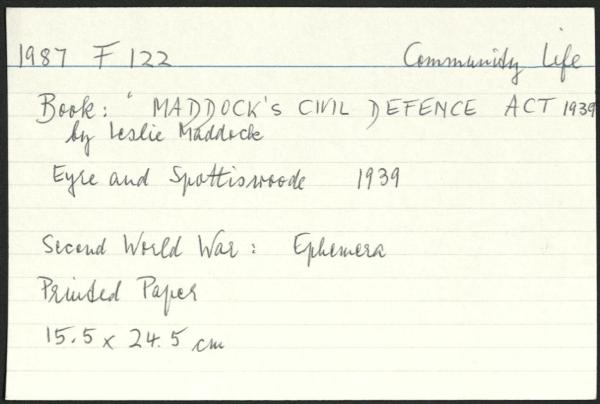 1987 F 122 Community Life
Book: " MADDOCK'S CIVIL DEFENCE ACT 1939
by Leslie Maddock
Eyre and Spottiswoode 1939
Second World War: Ephemera
Printed Paper
15.5 x 24.5 cm